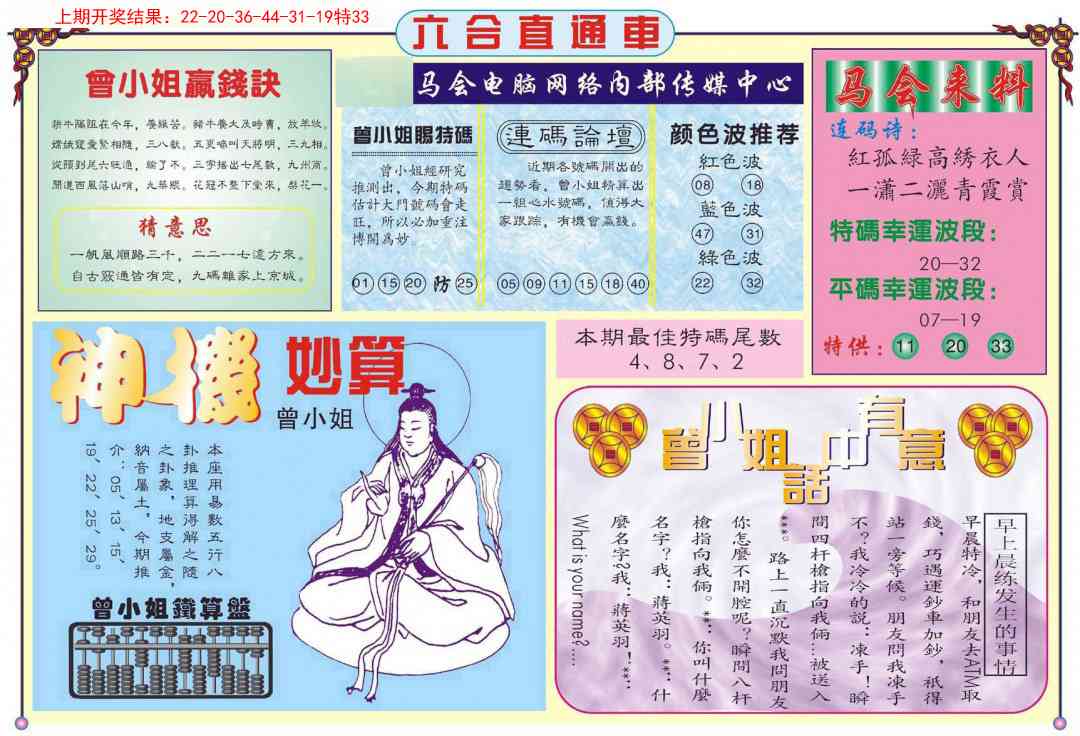 上期开奖结果：22-20-36-44-31-19特33
六合直通車
马会电脑网络内部传媒中心
曾小姐贏錢訣
從頭到尾六旺漁，輸了不。三字搖出七尾數，九州商。
猜意思
一帆風順路三千，二二一七遠方來。
自古窮通皆有定，九碼離家上京城。
曾小姐賜特碼
曾小姐經研究
推測出，今期特碼
估計大門號碼會走
旺，所以必加重注
博開為妙
01 15 20 防 25
連碼論壇
近期各號碼開出的
趨勢看，曾小姐精算出
一組心水號碼，值得大
家跟踪，有機會贏錢。
05 09 11 15 18 40
颜色波推荐
紅色波
08 18
藍色波
47 31
綠色波
22 32
马会来料
连码诗：
紅孤緑高綉衣人
一瀟二灑青霞賞
特碼幸運波段：
20—32
平碼幸運波段：
07—19
特供：11 20 33
本期最佳特碼尾數
4、8、7、2
神機妙算
曾小姐
本座用易數五行八
卦推理算得解之隨
之卦象，地支屬金，
納音屬土，今期推
介：05、13、15、
19、22、25、29。
曾小姐鐵算盤
曾小姐話中有意
早上晨练发生的事情
早晨特冷，和朋友去ATM取
錢，巧遇運鈔車加鈔，祇得
站一旁等候。朋友問我凍手
不？我冷冷的說：凍手！瞬
間四杆槍指向我倆…被送入
***。路上一直沉默我問朋友
你怎麼不開腔呢？瞬間八杆
槍指向我倆。**：你叫什麼
名字？我：蔣英羽。**：什
麼名字?我：蔣英羽！**：
What is your name?....